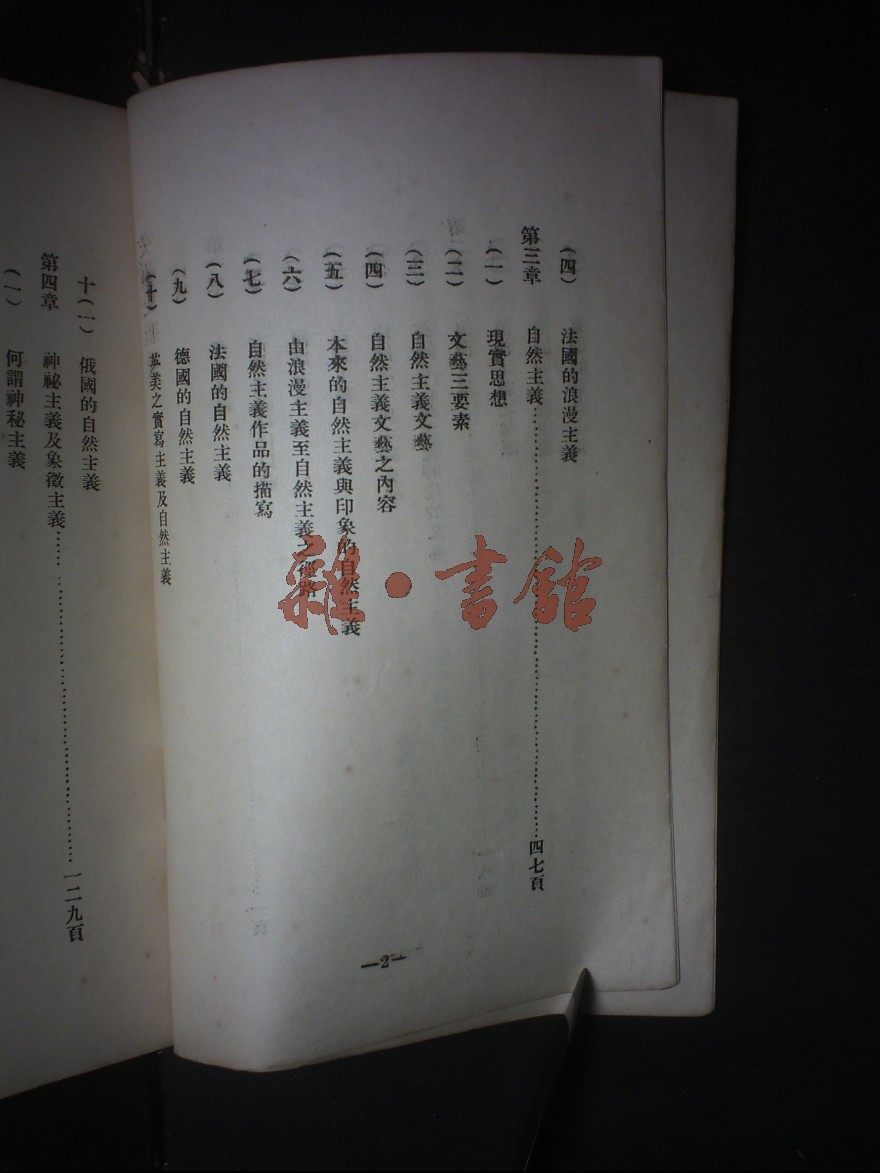 (四) 法國的浪漫主義
第三章 自然主義……………………四七頁
(一) 現實思想
(二) 文藝三要素
(三) 自然主義文藝
(四) 自然主義文藝之內容
(五) 本來的自然主義與印象的自然主義
(六) 由浪漫主義至自然主義之
(七) 自然主義作品的描寫
(八) 法國的自然主義
(九) 德國的自然主義
(十) 英美之實寫主義及自然主義
—2—
十(一) 俄國的自然主義
第四章 神祕主義及象徵主義……………………一二九頁
(一) 何謂神秘主義
雜·書館